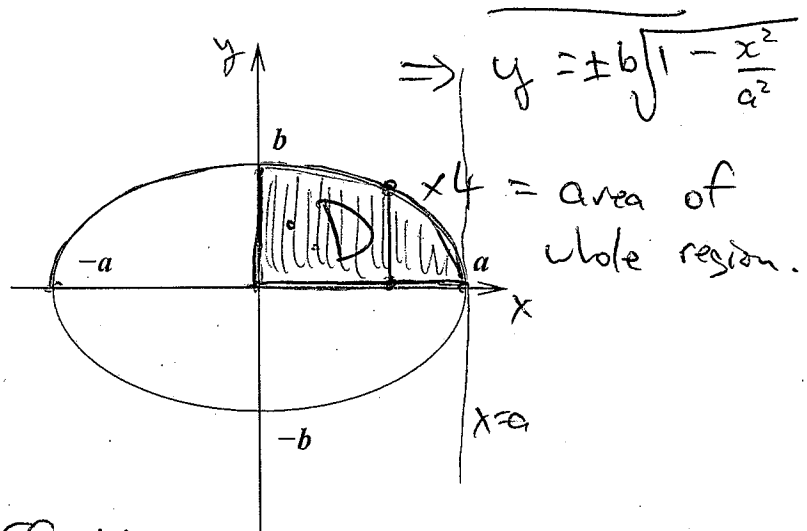 ⇒ y = ±b√(1 - x²/a²)
y
b
D ×4 = area of
whole region.
-a
a
x
x=a
-b